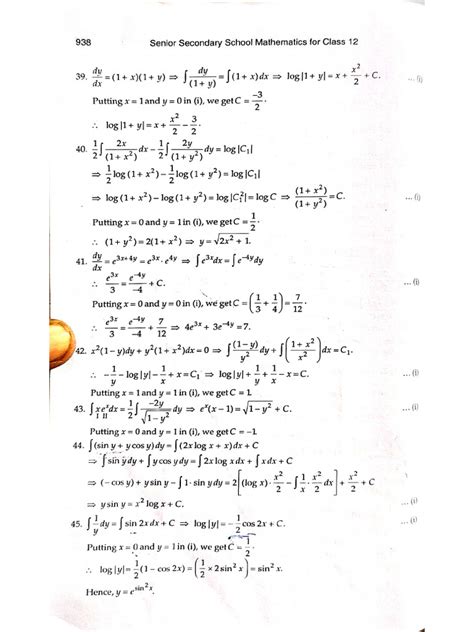 938 Senior Secondary School Mathematics for Class 12
39. dy/dx = (1 + x)(1 + y) ⇒ ∫ dy/(1 + y) = ∫(1 + x)dx ⇒ log|1 + y| = x + x²/2 + C. ... (i)
Putting x = 1 and y = 0 in (i), we get C = −3/2.
∴ log|1 + y| = x + x²/2 − 3/2.
40. 1/2 ∫ 2x/(1 + x²) dx − 1/2 ∫ 2y/(1 + y²) dy = log|C₁|
⇒ 1/2 log(1 + x²) − 1/2 log(1 + y²) = log|C₁|
⇒ log(1 + x²) − log(1 + y²) = log|C₁²| = log C ⇒ (1 + x²)/(1 + y²) = C. ... (i)
Putting x = 0 and y = 1 in (i), we get C = 1/2.
∴ (1 + y²) = 2(1 + x²) ⇒ y = √(2x² + 1).
41. dy/dx = e^(3x+4y) = e^(3x) · e^(4y) ⇒ ∫e^(3x)dx = ∫e^(−4y)dy
∴ e^(3x)/3 = e^(−4y)/−4 + C. ... (i)
Putting x = 0 and y = 0 in (i), we get C = (1/3 + 1/4) = 7/12.
∴ e^(3x)/3 = e^(−4y)/−4 + 7/12 ⇒ 4e^(3x) + 3e^(−4y) = 7.
42. x²(1 − y)dy + y²(1 + x²)dx = 0 ⇒ ∫ (1 − y)/y² dy + ∫ ((1 + x²)/x²) dx = C₁.
∴ −1/y − log|y| − 1/x + x = C₁ ⇒ log|y| + 1/y + 1/x − x = C. ... (i)
Putting x = 1 and y = 1 in (i), we get C = 1.
43. ∫ x e^x dx = 1/2 ∫ −2y/√(1 − y²) dy ⇒ e^x(x − 1) = √(1 − y²) + C. ... (i)
I II
Putting x = 0 and y = 1 in (i), we get C = −1.
44. ∫(sin y + y cos y)dy = ∫(2x log x + x)dx + C
⇒ ∫ sin y dy + ∫ y cos y dy = ∫ 2x log x dx + ∫ x dx + C
⇒ (− cos y) + y sin y − ∫ 1 · sin y dy = 2[(log x) · x²/2 − ∫ 1/x · x²/2 dx] + x²/2 + C
⇒ y sin y = x² log x + C. ... (i)
45. ∫ 1/y dy = ∫ sin 2x dx + C ⇒ log|y| = −1/2 cos 2x + C. ... (i)
Putting x = 0 and y = 1 in (i), we get C = 1/2.
∴ log|y| = 1/2 (1 − cos 2x) = (1/2 × 2 sin² x) = sin² x.
Hence, y = e^(sin² x).